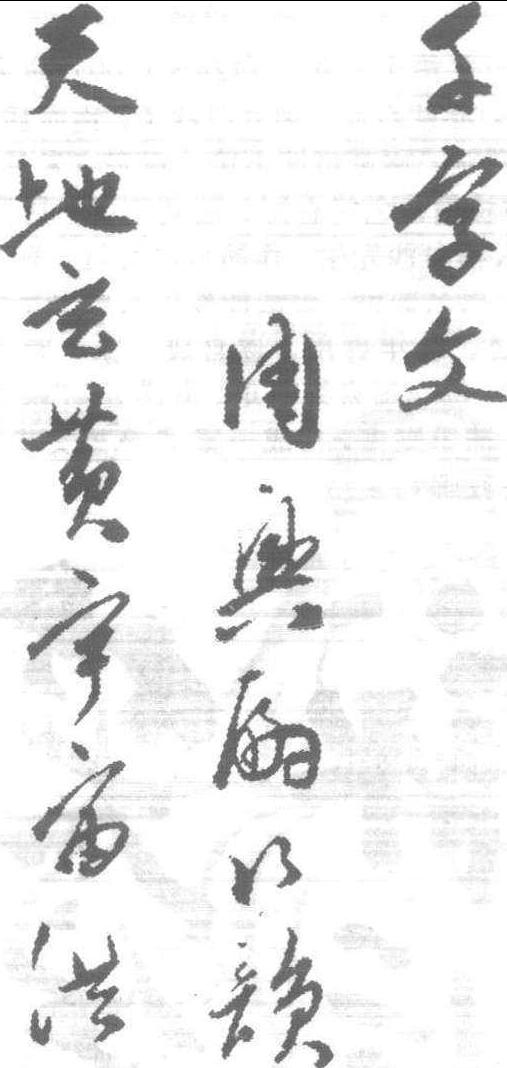 千字文
周興嗣次韻
天地玄黃宇宙洪